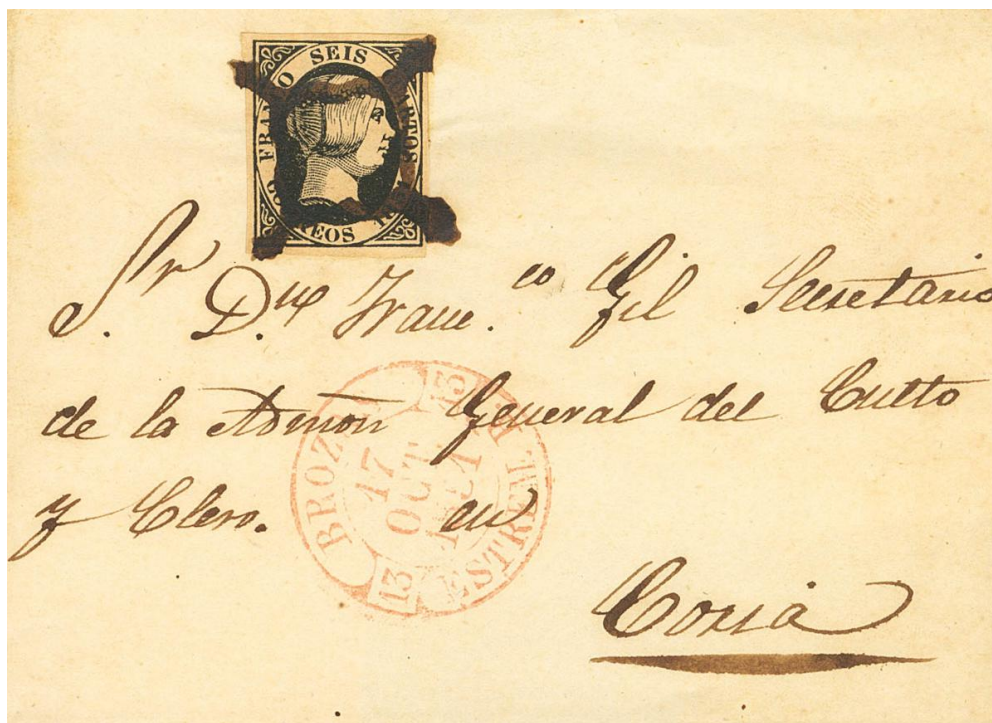 FRANCO SEIS CUARTOS 1851 CORREOS
Sr. D.n Franc.co Gil Secretario
de la Admon General del Culto
y Clero. en
BROZAS
17
OCT
1851
13
13
Coria